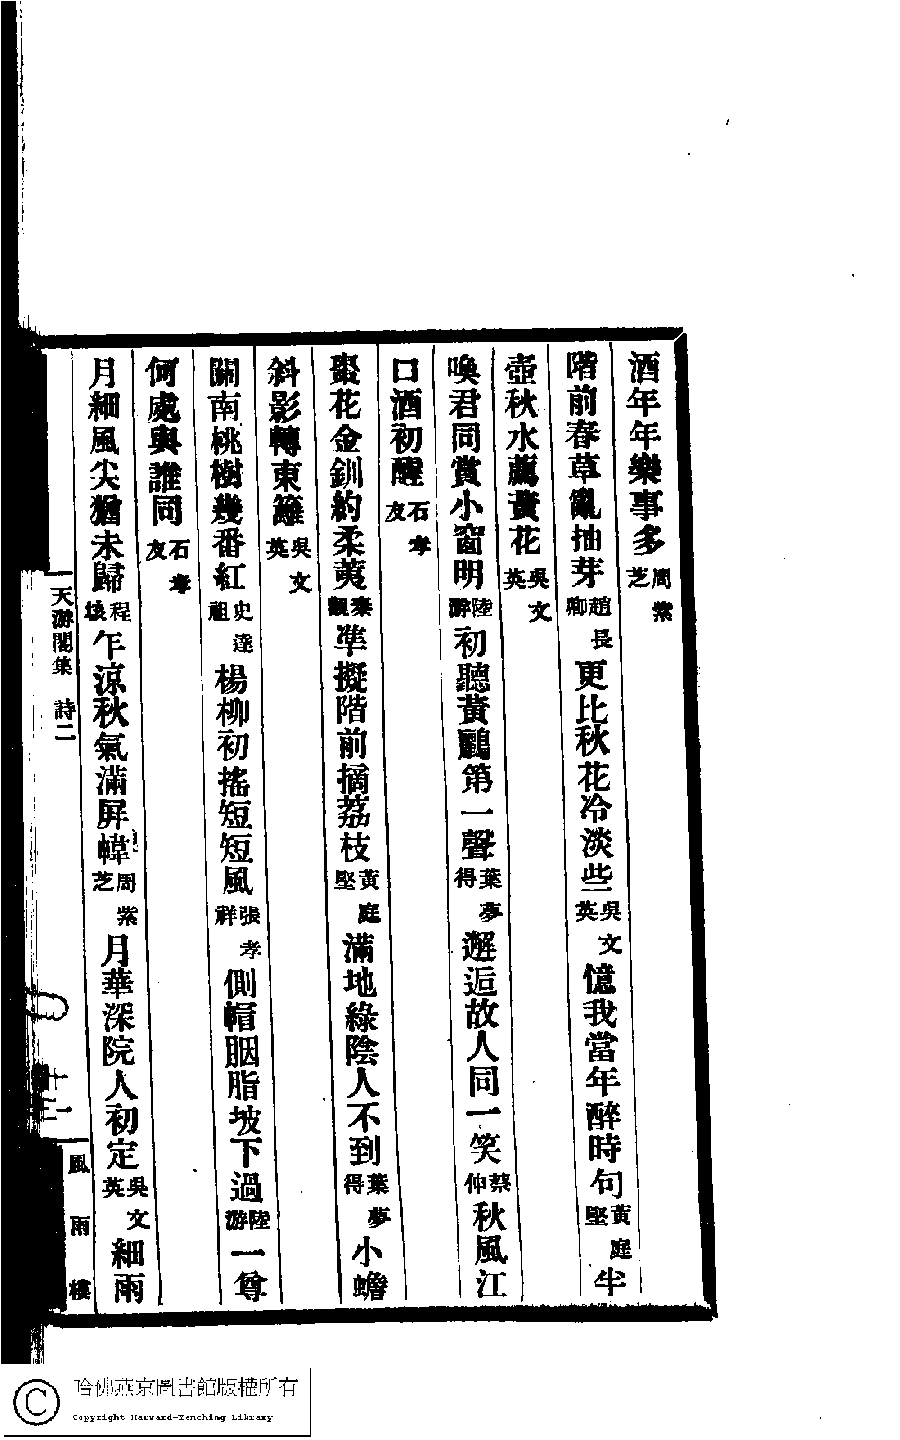 酒年年樂事多周紫芝
階前春草亂抽芽趙長卿更比秋花冷淡些吳文英憶我當年醉時句黃庭堅半
壺秋水薦黃花吳文英
喚君同賞小窗明陸游初聽黃鸝第一聲葉夢得邂逅故人同一笑蔡伸秋風江
口酒初醒石孝友
棗花金釧約柔荑秦觀準擬階前摘荔枝黃庭堅滿地綠陰人不到葉夢得小蟾
斜影轉東籬吳文英
關南桃樹幾番紅史達祖楊柳初搖短短風張孝祥側帽胭脂坡下過陸游一尊
何處與誰同石孝友
月細風尖猶未歸程垓乍涼秋氣滿屏幃周紫芝月華深院人初定吳文英細雨
天游閣集 詩二
十二
風雨樓
哈佛燕京圖書館版權所有
Copyright Harvard-Yenching Library